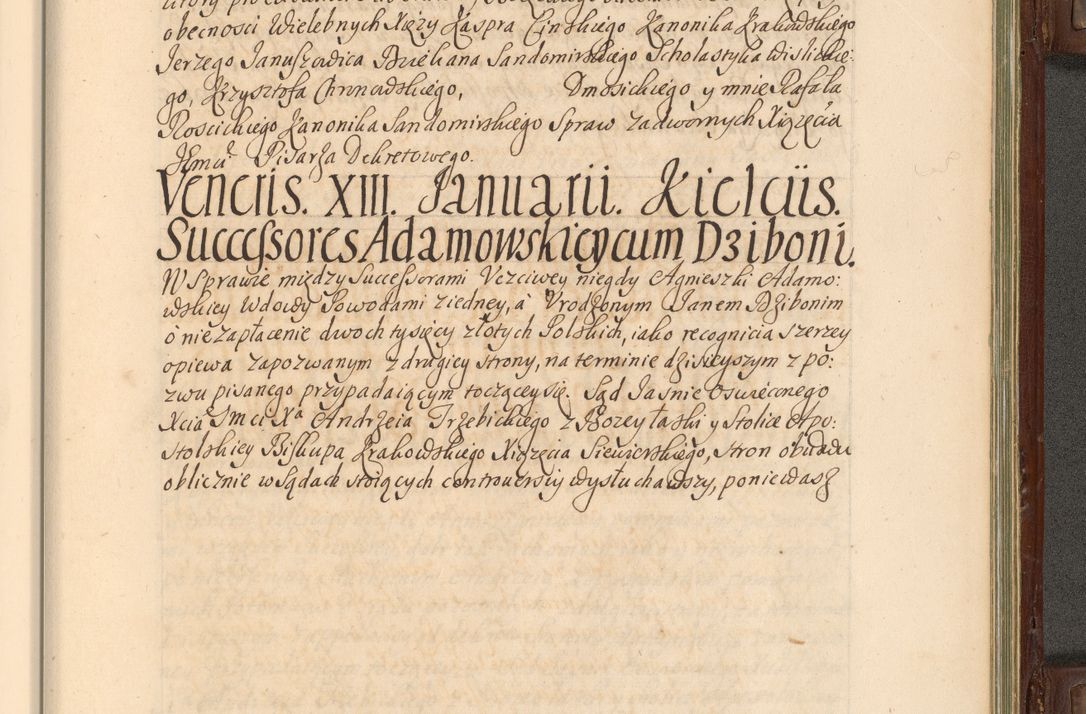 obecnosci Wielebnych Xięży Kaspra Cinskiego Kanonika Krakowskiego
Jerzego Januszowica Dziekana Sandomirskiego Scholastyka Wislickie:
go, Krzysztofa Chnnowskiego, Dmosickiego y mnie Rafała
Rościckiego Kanonika Sandomirskiego Spraw zadwornych Xiążęcia
Jmci Pisarza Dekretowego.
Veneris. XIII. Januarii. Kielciis.
Successores Adamowskiey cum Dziboni.
W Sprawie między Successorami Uczciwey niegdy Agnieszki Adamo:
wskiey Wdowy Powodami z iedney, á Urodzonym Janem Dzibonim
ó niezapłacenie dwoch tysięcy złotych Polskich, iako recognicia szerzey
opiewa zapozwanym z drugiey strony, na terminie dzisieyszym z po:
zwu pisanego przypadaiącym toczącey się. Sąd Jasnie Oswieconego
Xcia Jmci Xa Andrzeia Trzebickiego z Bozey łaski y Stolice Apo:
stolskiey Biskupa Krakowskiego Xiążęcia Siewierskiego, stron obudwu
oblicznie w Sądach stoiących controversiy wysłuchawszy, poniewasz